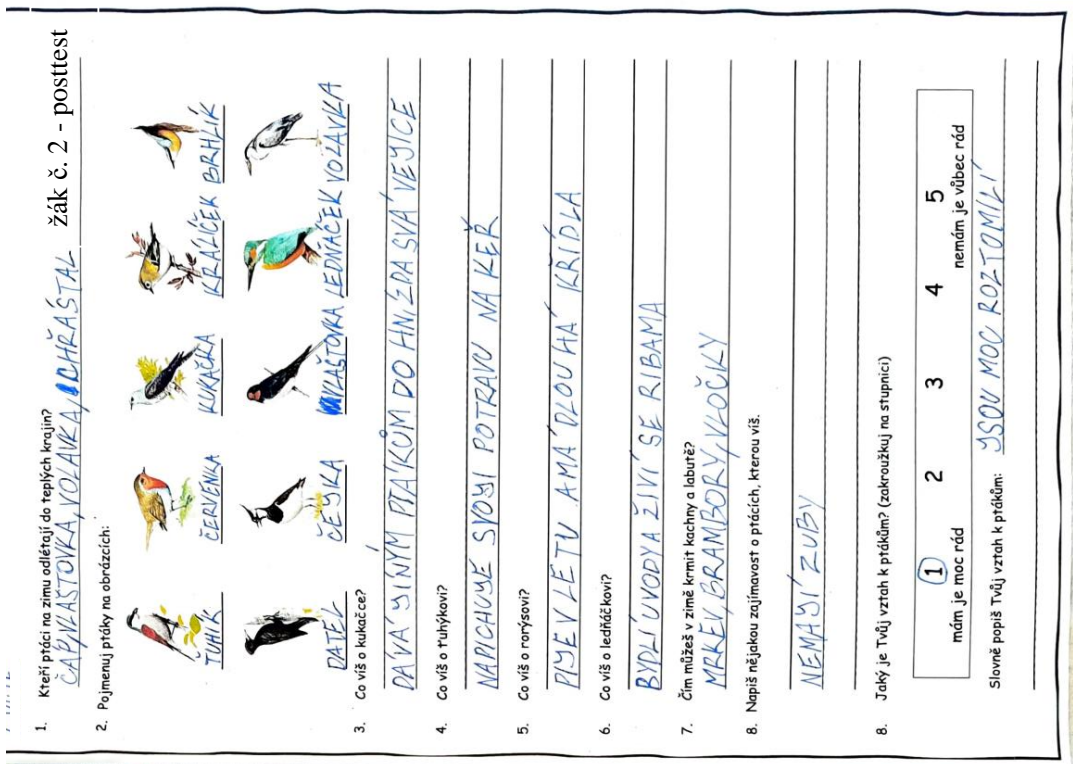 žák č. 2 - posttest
1. Kteří ptáci na zimu odlétají do teplých krajin?
ČÁP, VLAŠTOVKA, VOLAVKA, CHŘÁSTAL
2. Pojmenuj ptáky na obrázcích:
ŤUHÍK ČERVENKA KUKAČKA KRÁLÍČEK BRHLÍK
DATEL ČEJKA VLAŠTOVKA LEDŇÁČEK VOLAVKA
3. Co víš o kukačce?
DÁVÁ JINÝM PTÁKŮM DO HNÍZDA SVÁ VEJICE
4. Co víš o ťuhýkovi?
NAPICHUJE SVOJI POTRAVU NA KEŘ
5. Co víš o rorýsovi?
PIJE V LETU A MÁ DLOUHÁ KŘÍDLA
6. Co víš o ledňáčkovi?
BYDLÍ U VODY A ŽIVÍ SE RIBAMA
7. Čím můžeš v zimě krmit kachny a labutě?
MRKEV, BRAMBORY, VLOČKY
8. Napiš nějakou zajímavost o ptácích, kterou víš.
NEMAJÍ ZUBY
8. Jaký je Tvůj vztah k ptákům? (zakroužkuj na stupnici)
1 2 3 4 5
mám je moc rád nemám je vůbec rád
Slovně popiš Tvůj vztah k ptákům: JSOU MOC ROZTOMILÍ